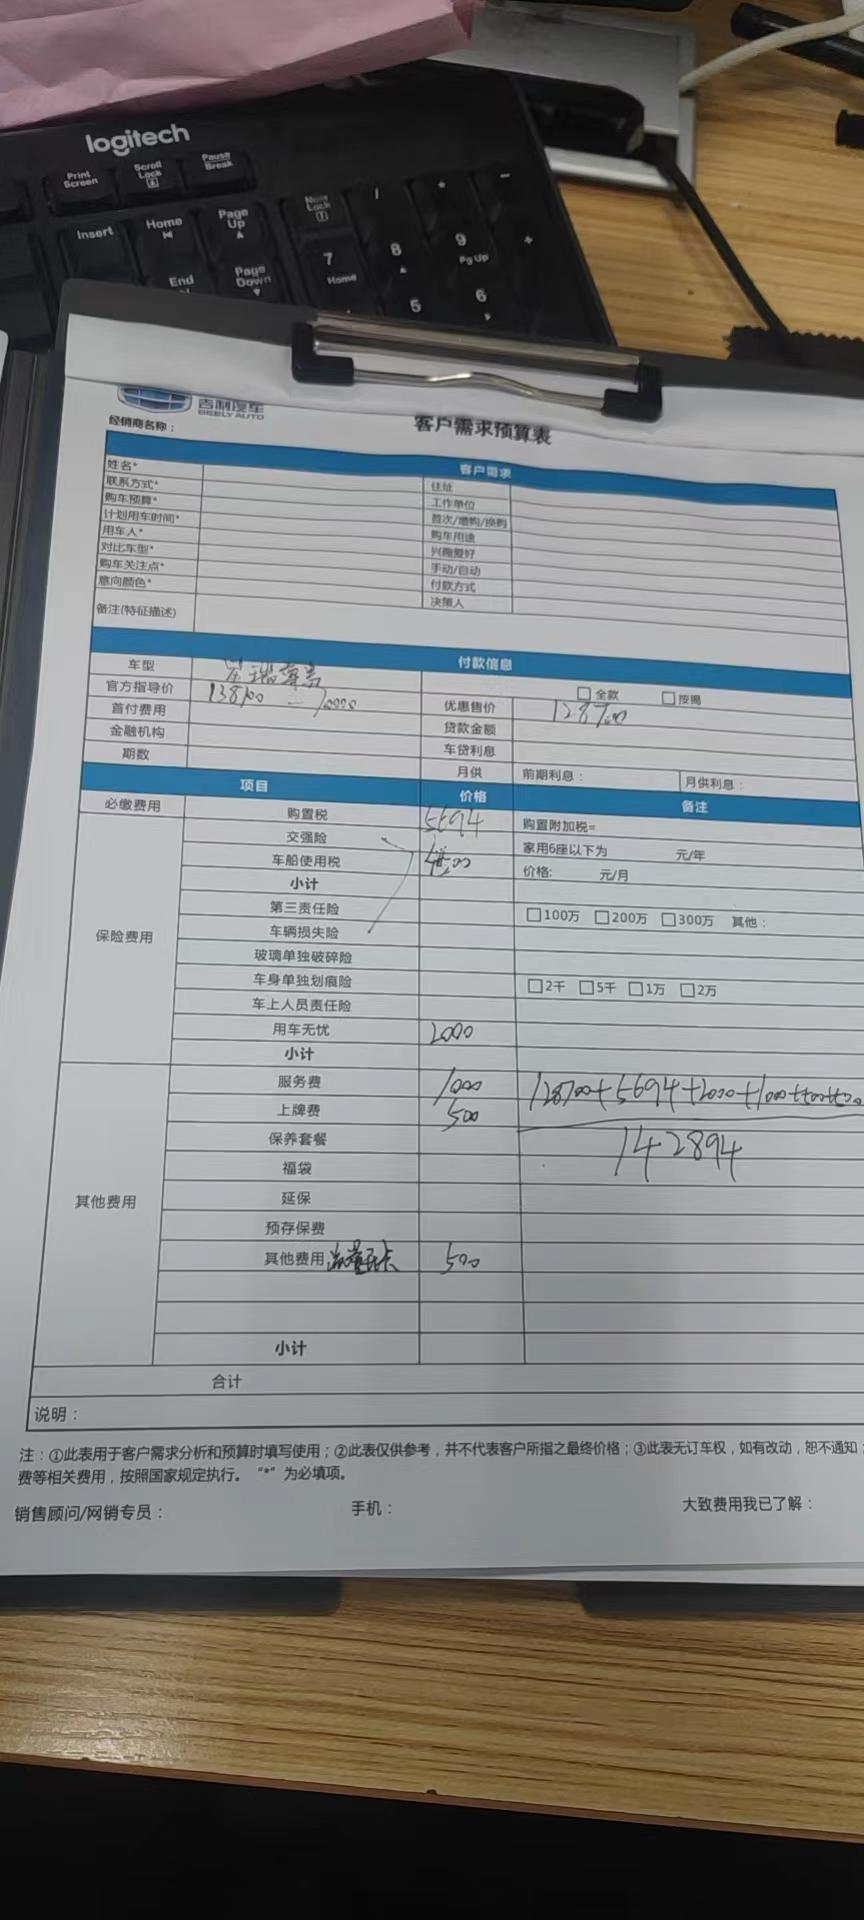 logitech
Print Screen
Scroll Lock
Pause Break
Insert
Home
Page Up
Num Lock
/
*
-
End
Page Down
7 Home
8
9 Pg Up
+
5
6
吉利汽车
GEELY AUTO
客户需求预算表
经销商名称：
客户需求
姓名*
住址
联系方式*
工作单位
购车预算*
首次/增购/换购
计划用车时间*
购车用途
用车人*
兴趣爱好
对比车型*
手动/自动
购车关注点*
付款方式
意向颜色*
决策人
备注(特征描述)
付款信息
车型
□全款 □按揭
官方指导价 138700 - 10000
优惠售价 128700
首付费用
贷款金额
金融机构
车贷利息
期数
月供 前期利息： 月供利息：
项目 价格 备注
必缴费用 购置税 5694 购置附加税=
保险费用
交强险 家用6座以下为 元/年
车船使用税 价格: 元/月
小计
第三责任险 □100万 □200万 □300万 其他：
车辆损失险
玻璃单独破碎险
车身单独划痕险 □2千 □5千 □1万 □2万
车上人员责任险
用车无忧 2000
小计
其他费用
服务费 1000 128700+5694+2000+1000+500+500
上牌费 500
保养套餐 142894
福袋
延保
预存保费
其他费用 500
小计
合计
说明：
注：①此表用于客户需求分析和预算时填写使用；②此表仅供参考，并不代表客户所指之最终价格；③此表无订车权，如有改动，恕不通知；
费等相关费用，按照国家规定执行。“*”为必填项。
销售顾问/网销专员： 手机： 大致费用我已了解：